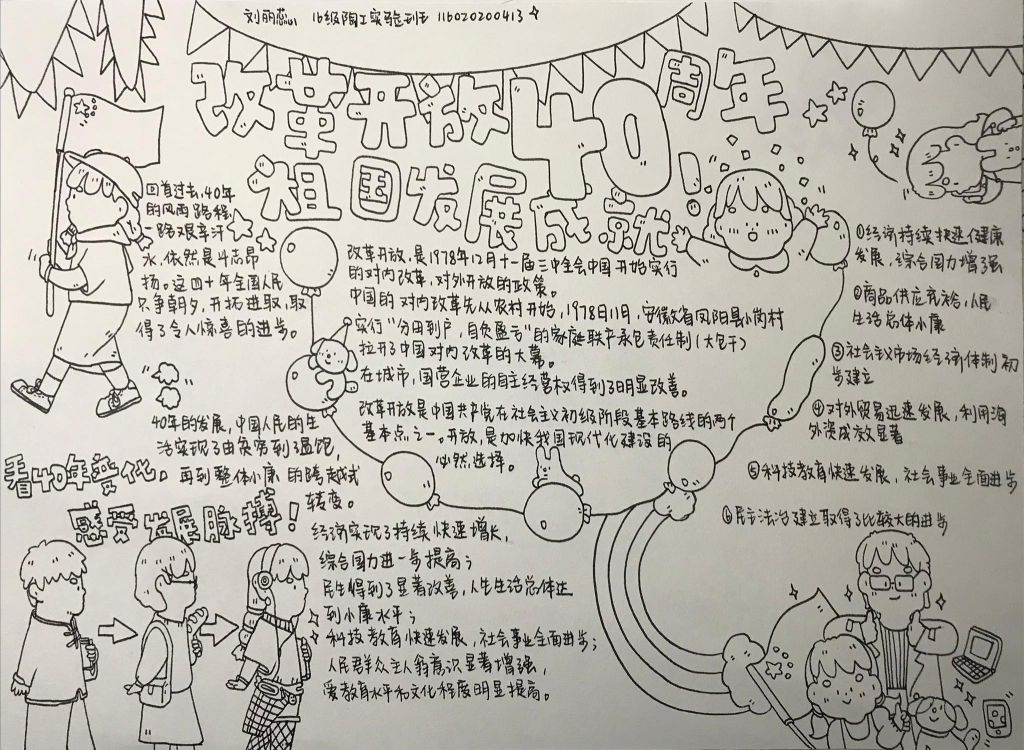 刘丽蕊 16级陶工实验班 116020200413
改革开放40周年
祖国发展成就!
回首过去,40年
的风雨路程,
一路艰辛汗
水,依然是斗志昂
扬。这四十年全国人民
只争朝夕,开拓进取,取
得了令人惊喜的进步。
改革开放,是1978年12月十一届三中全会中国开始实行
的对内改革,对外开放的政策。
中国的对内改革先从农村开始,1978年11月,安徽省凤阳县小岗村
实行"分田到户,自负盈亏"的家庭联产承包责任制(大包干)
拉开了中国对内改革的大幕。
在城市,国营企业的自主经营权得到了明显改善。
改革开放是中国共产党在社会主义初级阶段基本路线的两个
基本点之一。开放,是加快我国现代化建设的
必然选择。
①经济持续快速健康
发展,综合国力增强
②商品供应充裕,人民
生活总体小康
③社会主义市场经济体制初
步建立
④对外贸易迅速发展,利用海
外资成效显著
⑤科技教育快速发展,社会事业全面进步
⑥民主法治建立取得了比较大的进步
看40年变化。
感受发展脉搏!
40年的发展,中国人民的生
活实现了由贫穷到温饱,
再到整体小康的跨越式
转变。
经济实现了持续快速增长,
综合国力进一步提高;
民生得到了显著改善,人生生活总体达
到小康水平;
科技教育快速发展,社会事业全面进步;
人民群众主人翁意识显著增强,
受教育水平和文化程度明显提高。